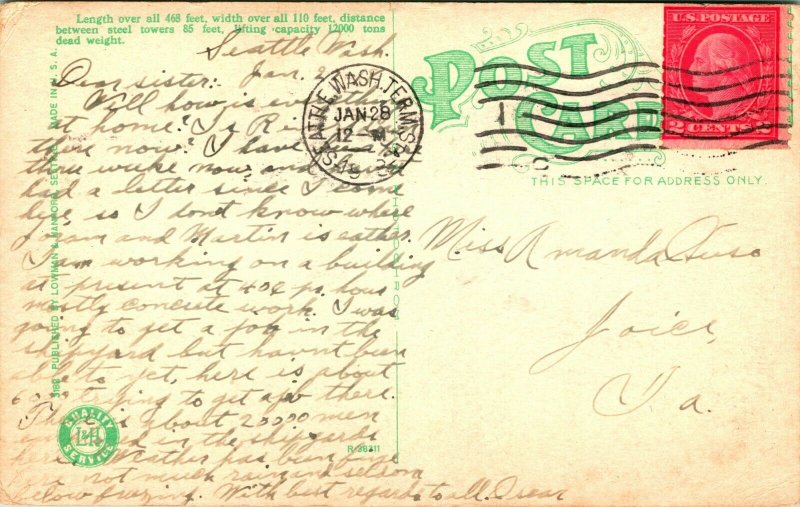 Length over all 468 feet, width over all 110 feet, distance
between steel towers 85 feet, lifting capacity 12000 tons
dead weight.
Seattle Wash
Jan. 2
Dear sister:
Well how is
at home? Is
there now? I have
three weeks now, and
had a letter since I come
here, so I dont know where
and Martin is eather.
I am working on a building
at present at 40¢ pr. hour
mostly concrete work. I was
going to get a job in the
shipyard but havnt been
able to yet, here is about
trying to get a job there.
There is about 20000 men
in the shipyards
here. Weather has been fine
not much rain and seldom
below freezing. With best regards to all. Oscar
POST
CARD
U.S. POSTAGE
2 CENTS 2
SEATTLE, WASH. TERMINAL STA.
JAN 28
12 - M
THIS SPACE FOR ADDRESS ONLY.
Miss Amanda
Joice,
Ia.
3188 PUBLISHED BY LOWMAN & HANFORD, SEATTLE MADE IN U. S. A.
QUALITY
L&H
SERVICE
R-36311